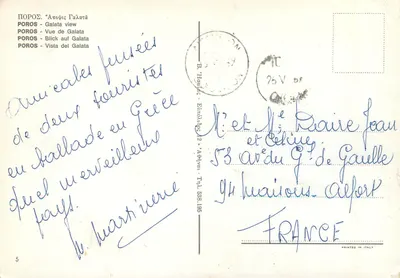 ΠΟΡΟΣ. Ἄποψις Γαλατᾶ
POROS - Galata view
POROS - Vue de Galata
POROS - Blick auf Galata
POROS - Vista del Galata
Amicales pensées
de deux touristes
en ballade en Grèce
Quel merveilleux
pays.
M. Martinerie
5
ΤΗΛ. 538.195
25 V
Mr et Me Daire Jean
et Céline
53 av. du Gl de Gaulle
94 Maisons-Alfort
FRANCE
PRINTED IN ITALY